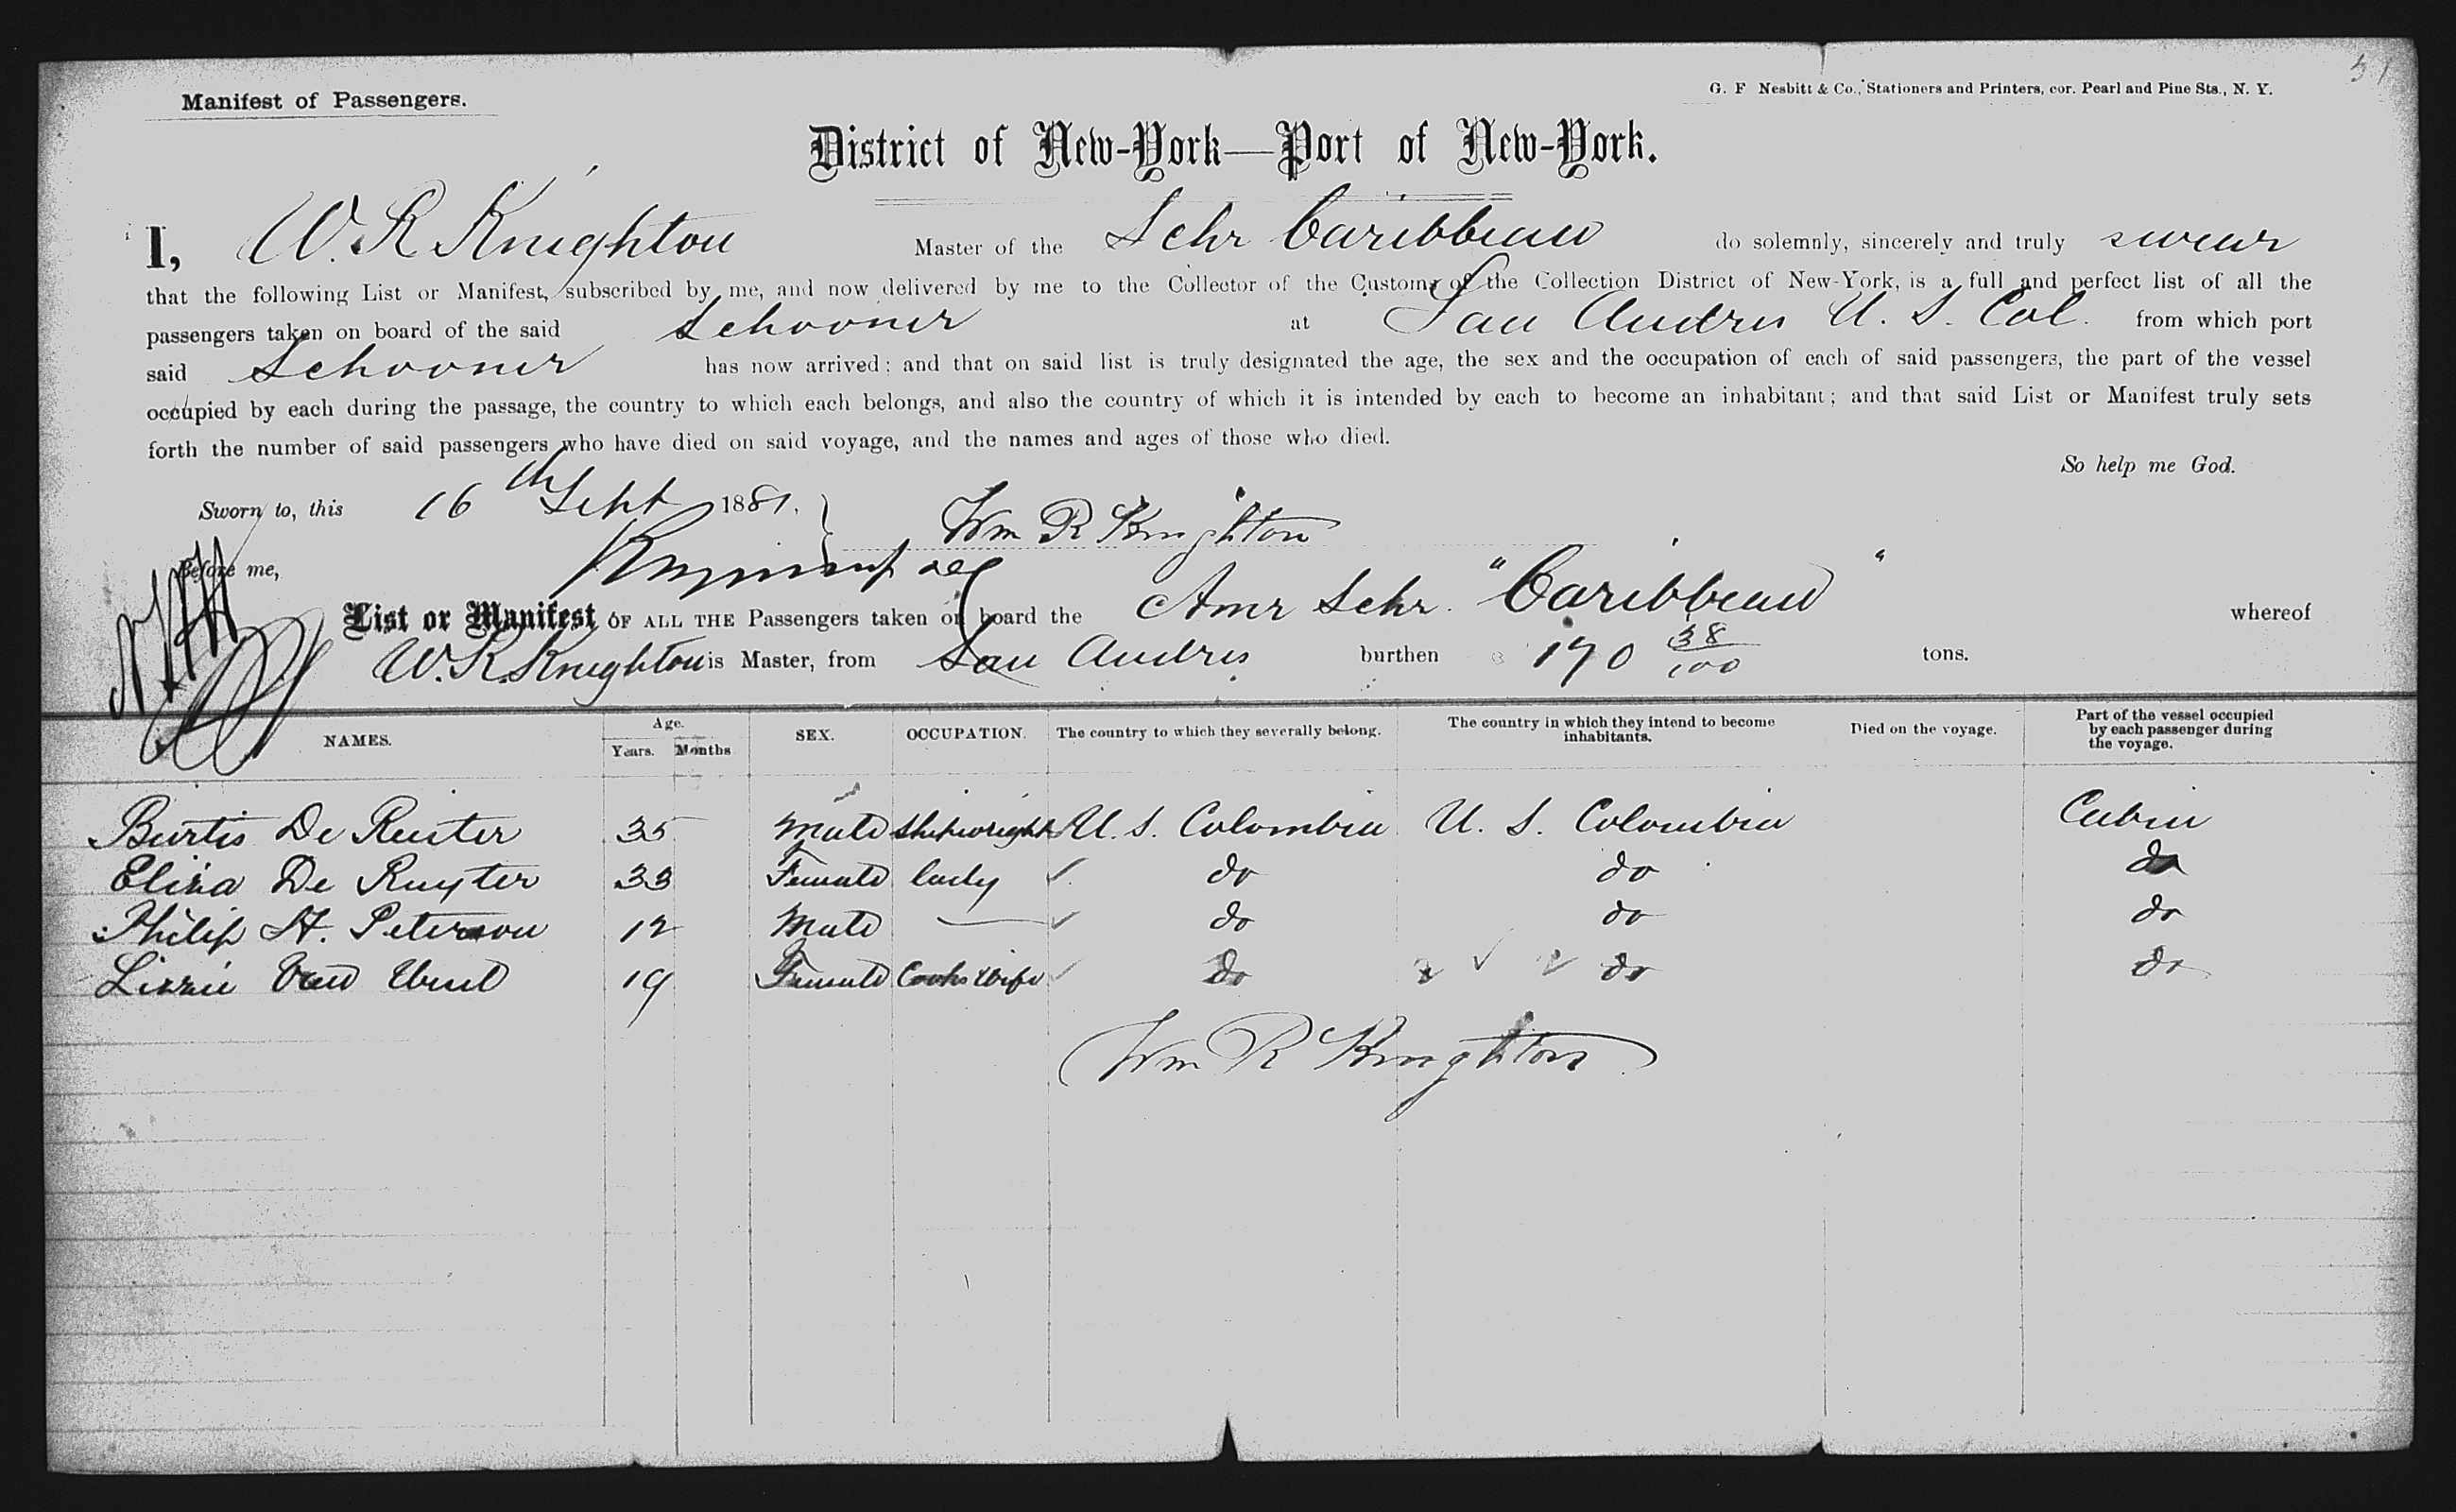 51
Manifest of Passengers.
G. F Nesbitt & Co., Stationers and Printers, cor. Pearl and Pine Sts., N. Y.
District of New-York—Port of New-York.
I, W. R Knighton Master of the Schr Caribbean do solemnly, sincerely and truly swear
that the following List or Manifest, subscribed by me, and now delivered by me to the Collector of the Customs of the Collection District of New-York, is a full and perfect list of all the
passengers taken on board of the said Schooner at San Andres U. S. Col. from which port
said Schooner has now arrived: and that on said list is truly designated the age, the sex and the occupation of each of said passengers, the part of the vessel
occupied by each during the passage, the country to which each belongs, and also the country of which it is intended by each to become an inhabitant; and that said List or Manifest truly sets
forth the number of said passengers who have died on said voyage, and the names and ages of those who died.
So help me God.
Sworn to, this 16th Sept 1881.
Wm R Knighton
Before me,
List or Manifest OF ALL THE Passengers taken on board the Amr Schr. "Caribbean" whereof
W. R. Knighton is Master, from San Andres burthen 190 38/100 tons.
NAMES. Age. Years. Months SEX. OCCUPATION. The country to which they severally belong. The country in which they intend to become inhabitants. Died on the voyage. Part of the vessel occupied by each passenger during the voyage.
Burtis De Ruiter 35 Male Shipwright U. S. Colombia U. S. Colombia Cabin
Eliza De Ruyter 33 Female lady do do do
Philip St. Peterson 12 Male — do do do
Lizzie Van 19 Female Cooks Wife do do do
Wm R Knighton